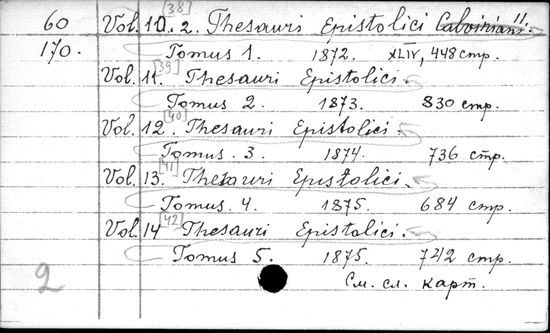 [38] 11.
60 Vol. 10. 2. Thesauri Epistolici Calviniani.
170. Tomus 1. 1872. XLIV, 448 стр.
[39]
Vol. 11. Thesauri Epistolici.
Tomus 2. 1873. 830 стр.
[40]
Vol. 12. Thesauri Epistolici.
Tomus. 3. 1874. 736 стр.
[41]
Vol. 13. Thesauri Epistolici.
Tomus. 4. 1875. 684 стр.
[42]
Vol. 14 Thesauri Epistolici.
Tomus 5. 1875. 742 стр.
2 См. сл. карт.